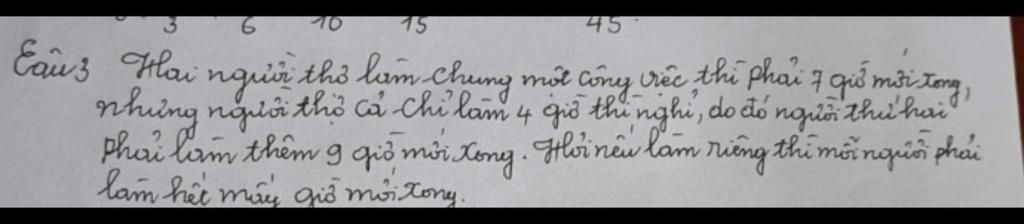 3 6 10 15 45
Câu 3 Hai người thợ làm chung một công việc thì phải 7 giờ mới xong,
nhưng người thợ cả chỉ làm 4 giờ thì nghỉ, do đó người thứ hai
phải làm thêm 9 giờ mới xong. Hỏi nếu làm riêng thì mỗi người phải
làm hết mấy giờ mới xong.